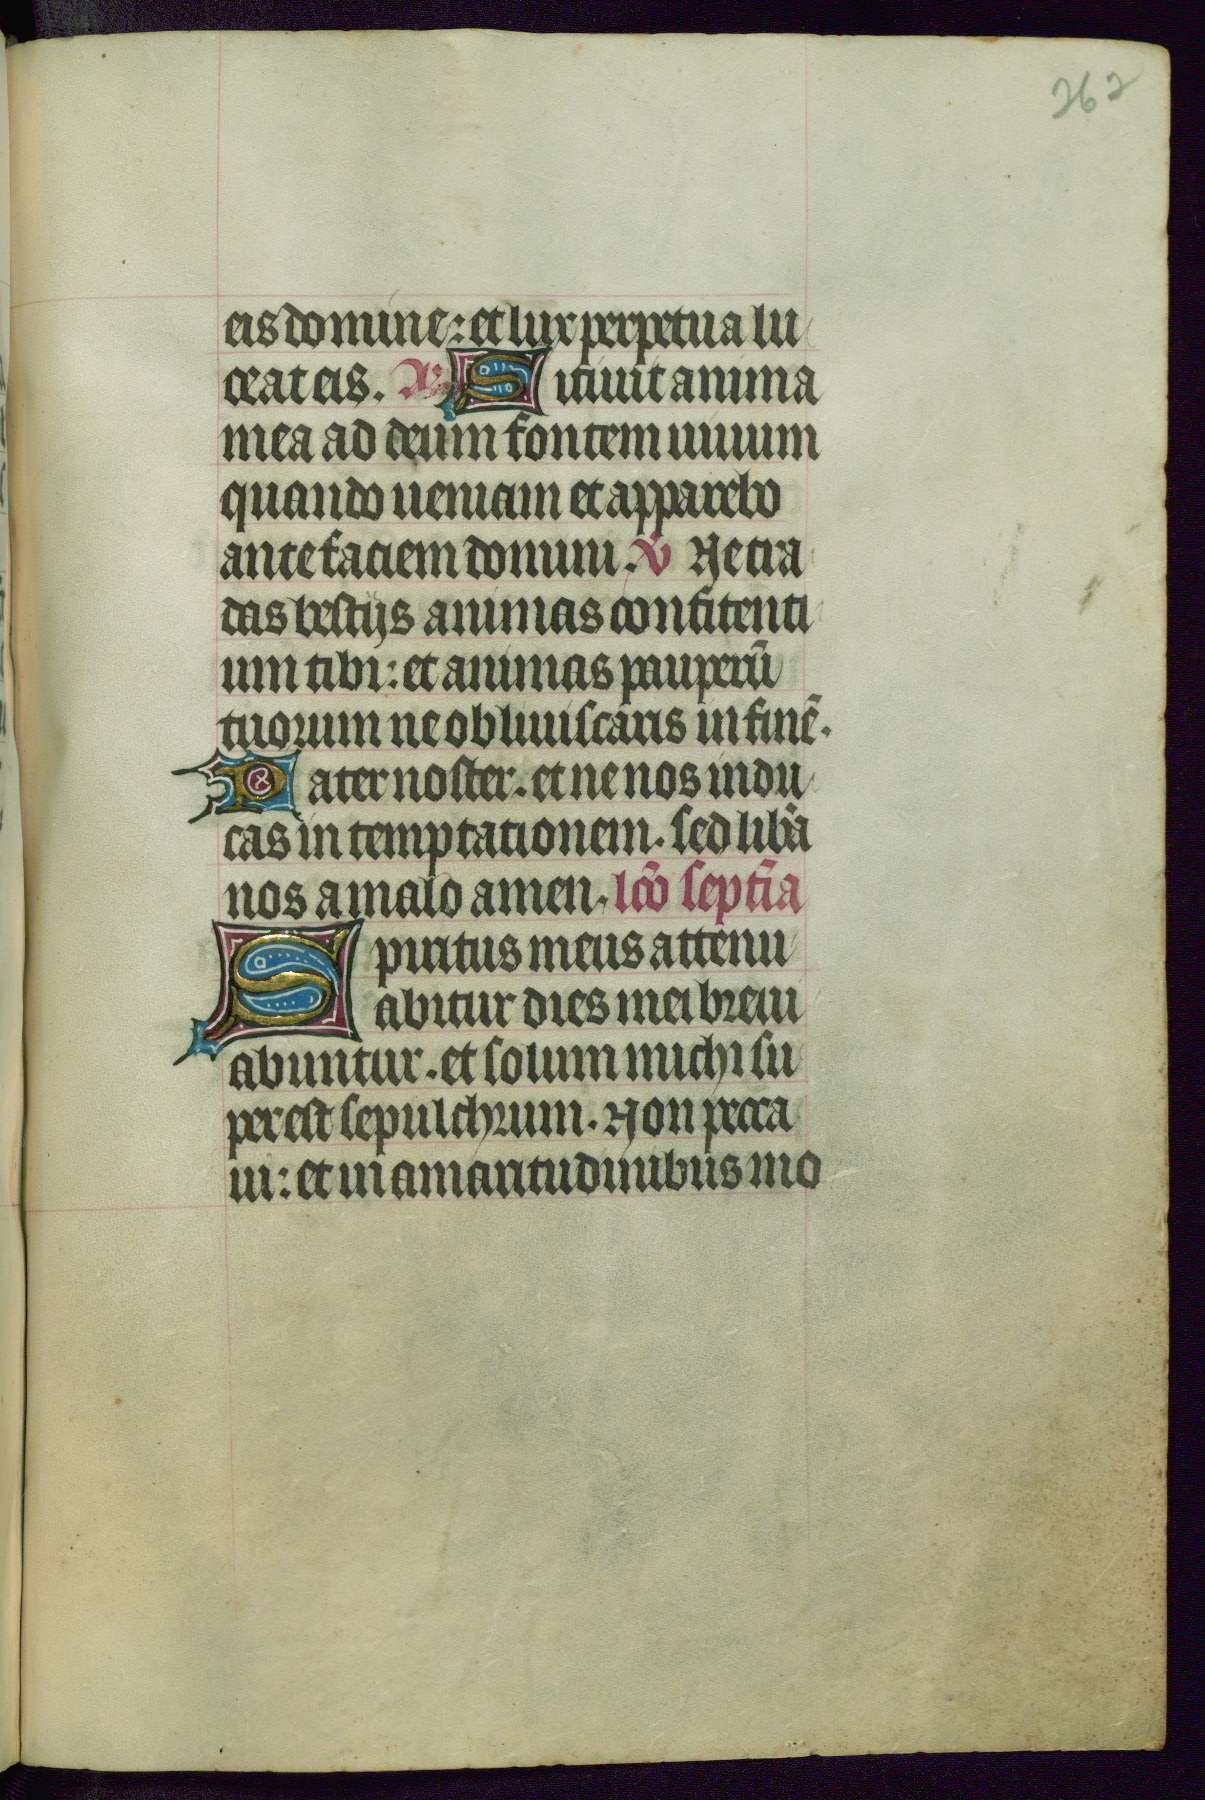 262
eis domine: et lux perpetua lu
ceat eis. An̄ Sitiuit anima
mea ad deum fontem uiuum
quando ueniam et apparebo
ante faciem domini. V̄ Ne tra
das bestijs animas confitenti
um tibi: et animas pauperū
tuorum ne obliuiscaris in finē.
Pater noster. et ne nos indu
cas in temptationem. sed lib̄a
nos a malo amen. lc̄o septīa
Spiritus meus attenu
abitur dies mei breui
abuntur. et solum michi su
perest sepulchrum. Non pecca
ui: et in amaritudinibus mo